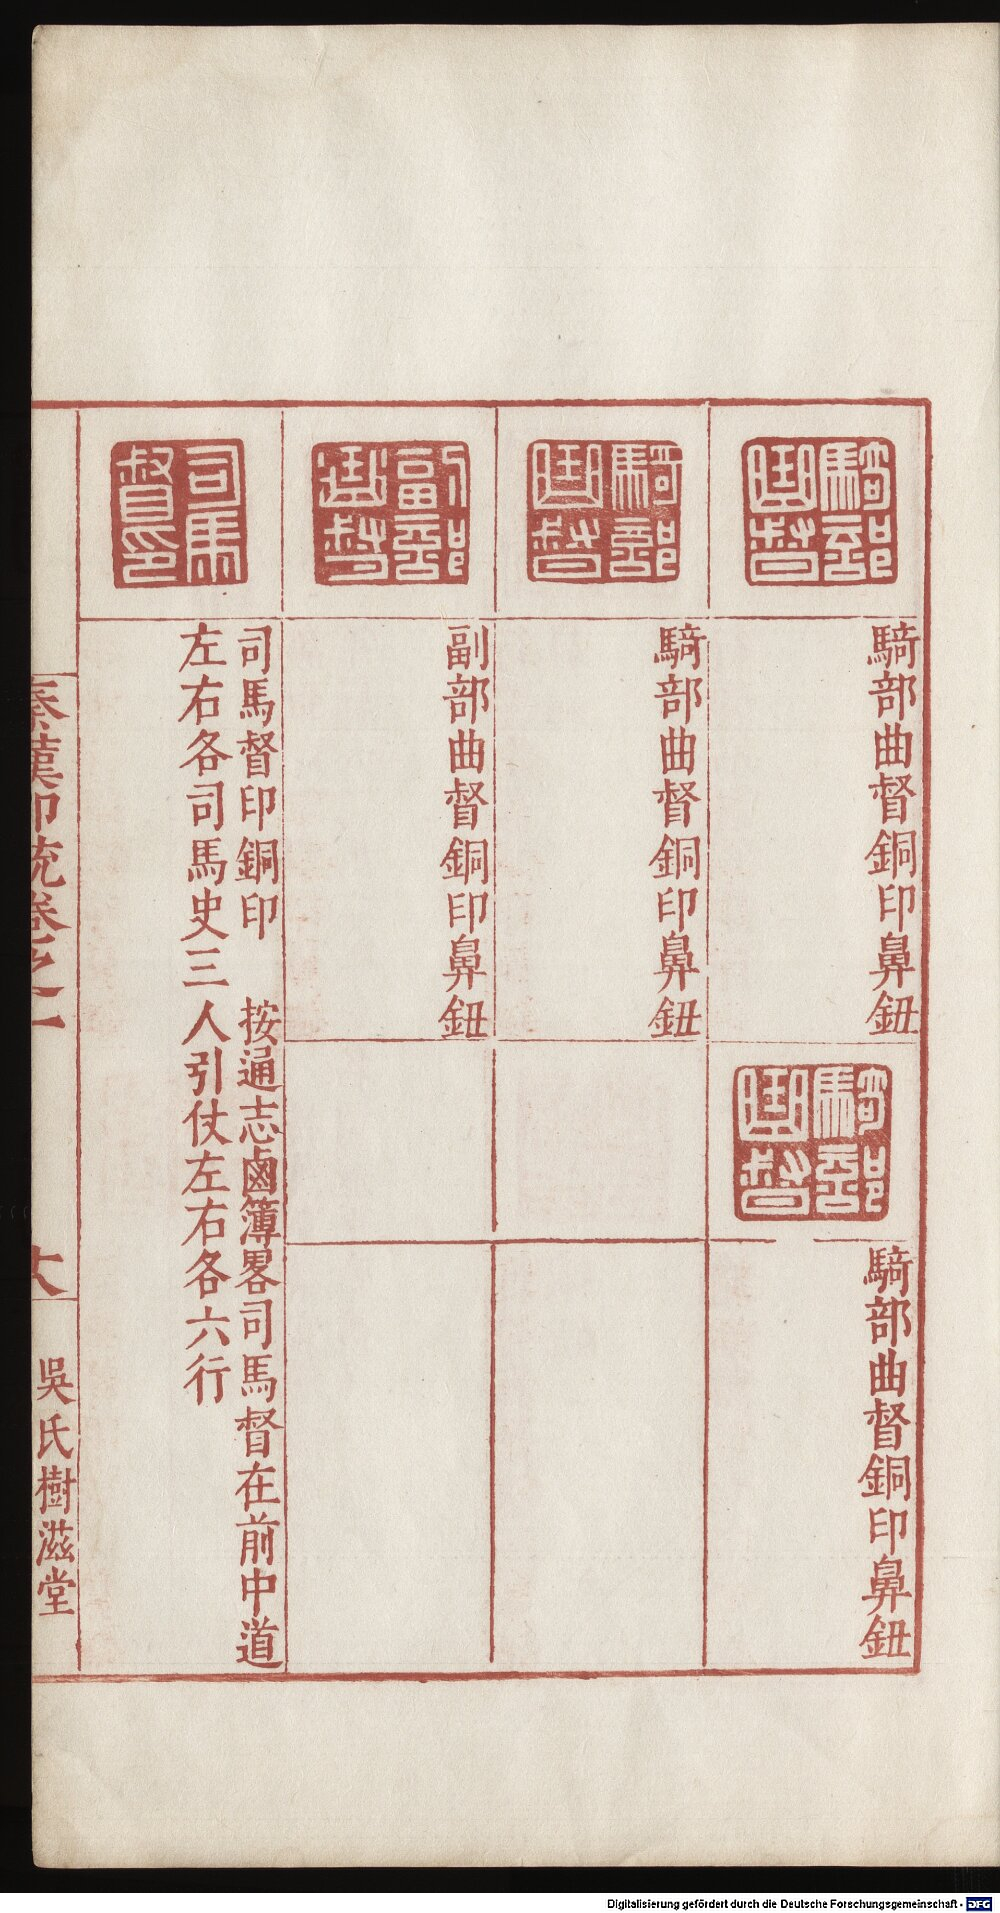 騎部曲督
騎部曲督銅印鼻鈕
騎部曲督
騎部曲督銅印鼻鈕
騎部曲督
騎部曲督銅印鼻鈕
副部曲督
副部曲督銅印鼻鈕
司馬督印
司馬督印銅印 按通志鹵簿畧司馬督在前中道
左右各司馬史三人引仗左右各六行
秦漢印統卷之一
吳氏樹滋堂
Digitalisierung gefördert durch die Deutsche Forschungsgemeinschaft - DFG